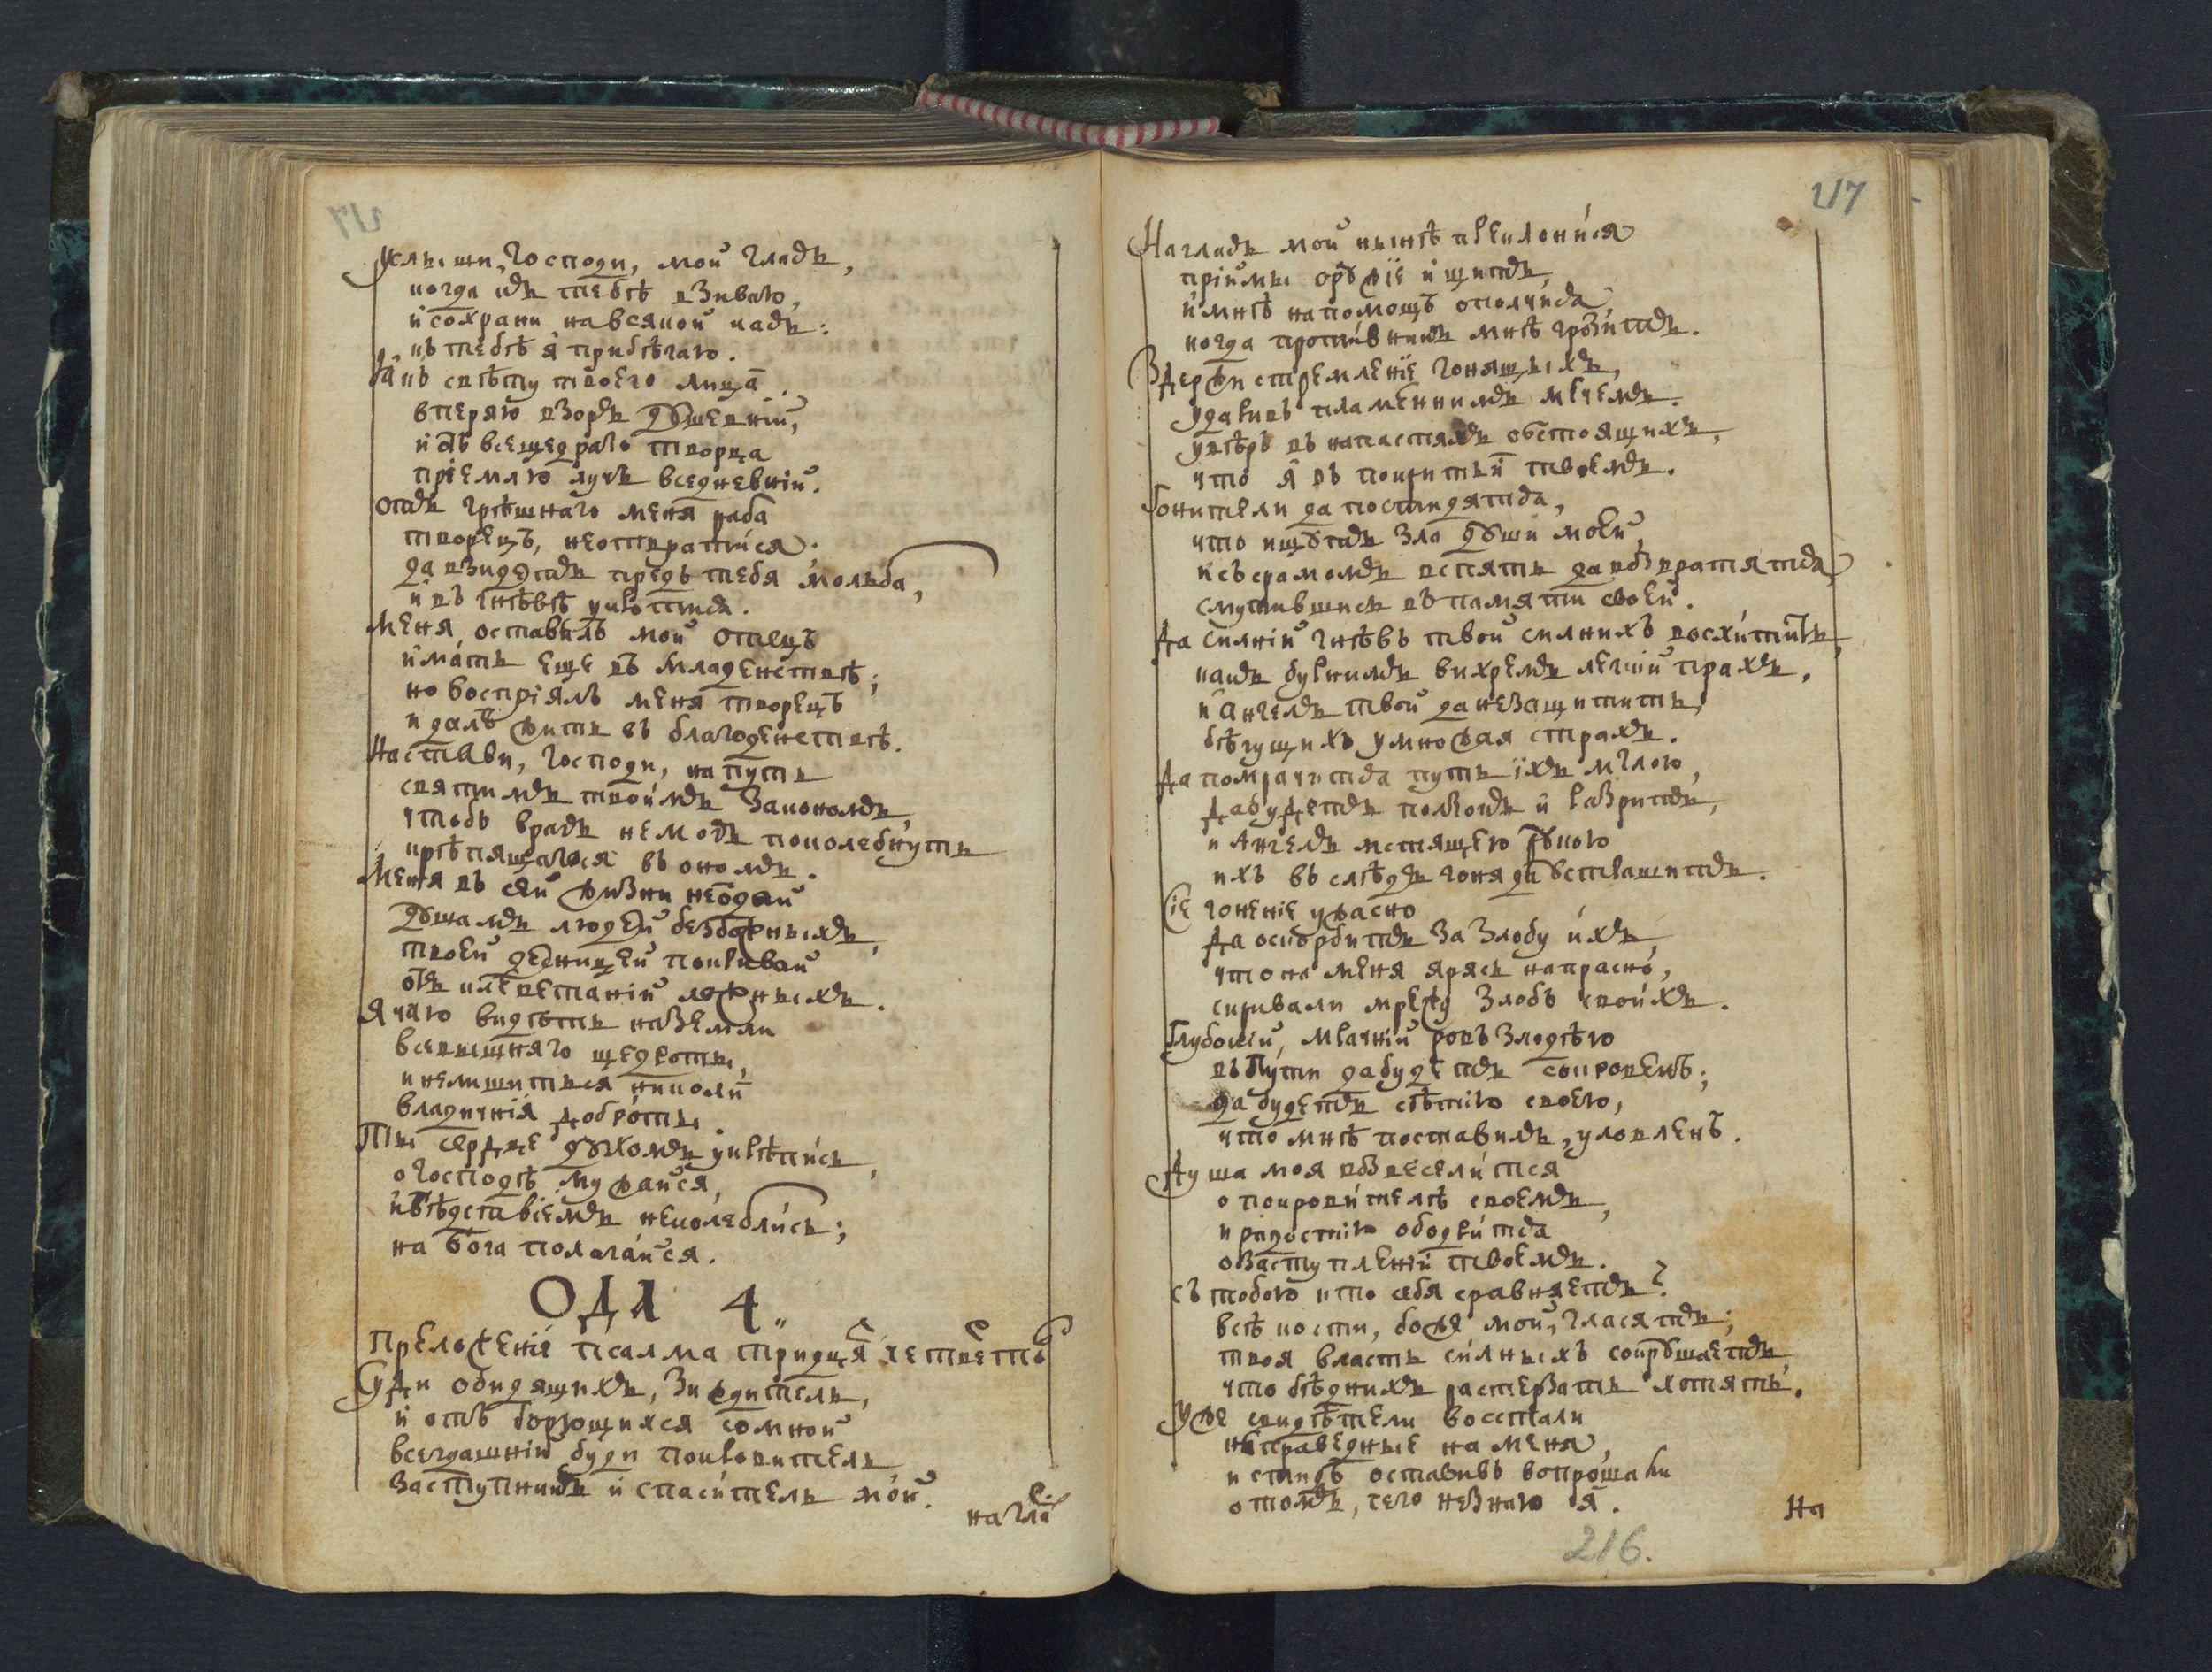 Услыши, Господи, мой гласъ,
когда къ тебѣ взиваю,
и сохрани на всякой часъ:
къ тебѣ я прибѣгаю.
Я къ свѣту твоего лица
вперяю взоръ душевній,
и отъ всещедраго творца
пріемлю лучь вседневній.
отъ грѣшнаго меня раба
творецъ, неотвратися.
да взидетъ предъ тебя мольба,
и въ гнѣвѣ укротися.
Меня оставилъ мой отецъ
и мать еще въ младенствѣ;
но воспріялъ меня творецъ
и далъ жить въ благоденствѣ.
Настави, Господи, на путь
святимъ твоимъ закономъ,
чтобъ врагъ не могъ поколебнуть
крѣпящагося въ ономъ.
Меня въ сей жизни не отдай
душамъ людей безбожныхъ,
твоей десницей покривай
отъ клеветаній ложныхъ.
Я чаю видѣть на земли
всевышняго щедроты,
и не лишиться николи
владичнія доброты.
Ты сердце духомъ укрѣпись,
о Господѣ мужайся,
и бѣдствіемъ неколеблись;
на Бога полагайся.
ОДА 4.
Преложеніе псалма тридця четверто
Суди обидящихъ, Зиждитель,
и отъ борющихся со мной
всегдашній буди покровитель
Заступникъ и спаситель мой.
на гла
217
На гласъ мой нынѣ преклонися
пріймы оружіе и щитъ,
и мнѣ на помощъ ополчися
когда противникъ мнѣ грозитъ.
Здержи стремленіе гонящыхъ,
ударивъ пламеннимъ мечемъ.
увѣрь въ напастяхъ обстоящихъ,
что я въ покритьи твоемъ.
Гонители да постидятся,
что ищутъ зла души моей,
и съ срамомъ вспять да возвратятся
смутившись въ памяти своей.
Да силній гнѣвъ твой силнихъ восхитить,
какъ бурнимъ вихремъ легкій прахъ.
и ангелъ твой да незащитить,
бѣгущихъ умножая страхъ.
Да помрачится путь ихъ мглою,
да будетъ ползокъ и разритъ,
и Ангелъ мстящею рукою
ихъ въ слѣдъ гоня да устрашитъ.
Сіе гоненіе ужасно
да оскорбитъ за злобу ихъ,
что на меня ярясь напрасно,
скривали мрежу злобъ своихъ.
Глубокій, мрачній ровъ злодѣю
въ пути да будетъ сокровенъ;
да будетъ сѣтію своею,
что мнѣ поставилъ, уловленъ.
Душа моя возвеселится
о покровителѣ своемъ,
и радостію ободрится
о заступленіи твоемъ.
съ тобою кто себя сравняетъ?
всѣ кости, боже мой, гласятъ;
твоя власть силныхъ сокрушаетъ,
что бѣднихъ растерзать хотять.
Уже свидѣтели восстали
неправедные на меня,
и стидъ оставивъ вопрошали
о томъ, чего незнаю я.
На
216.